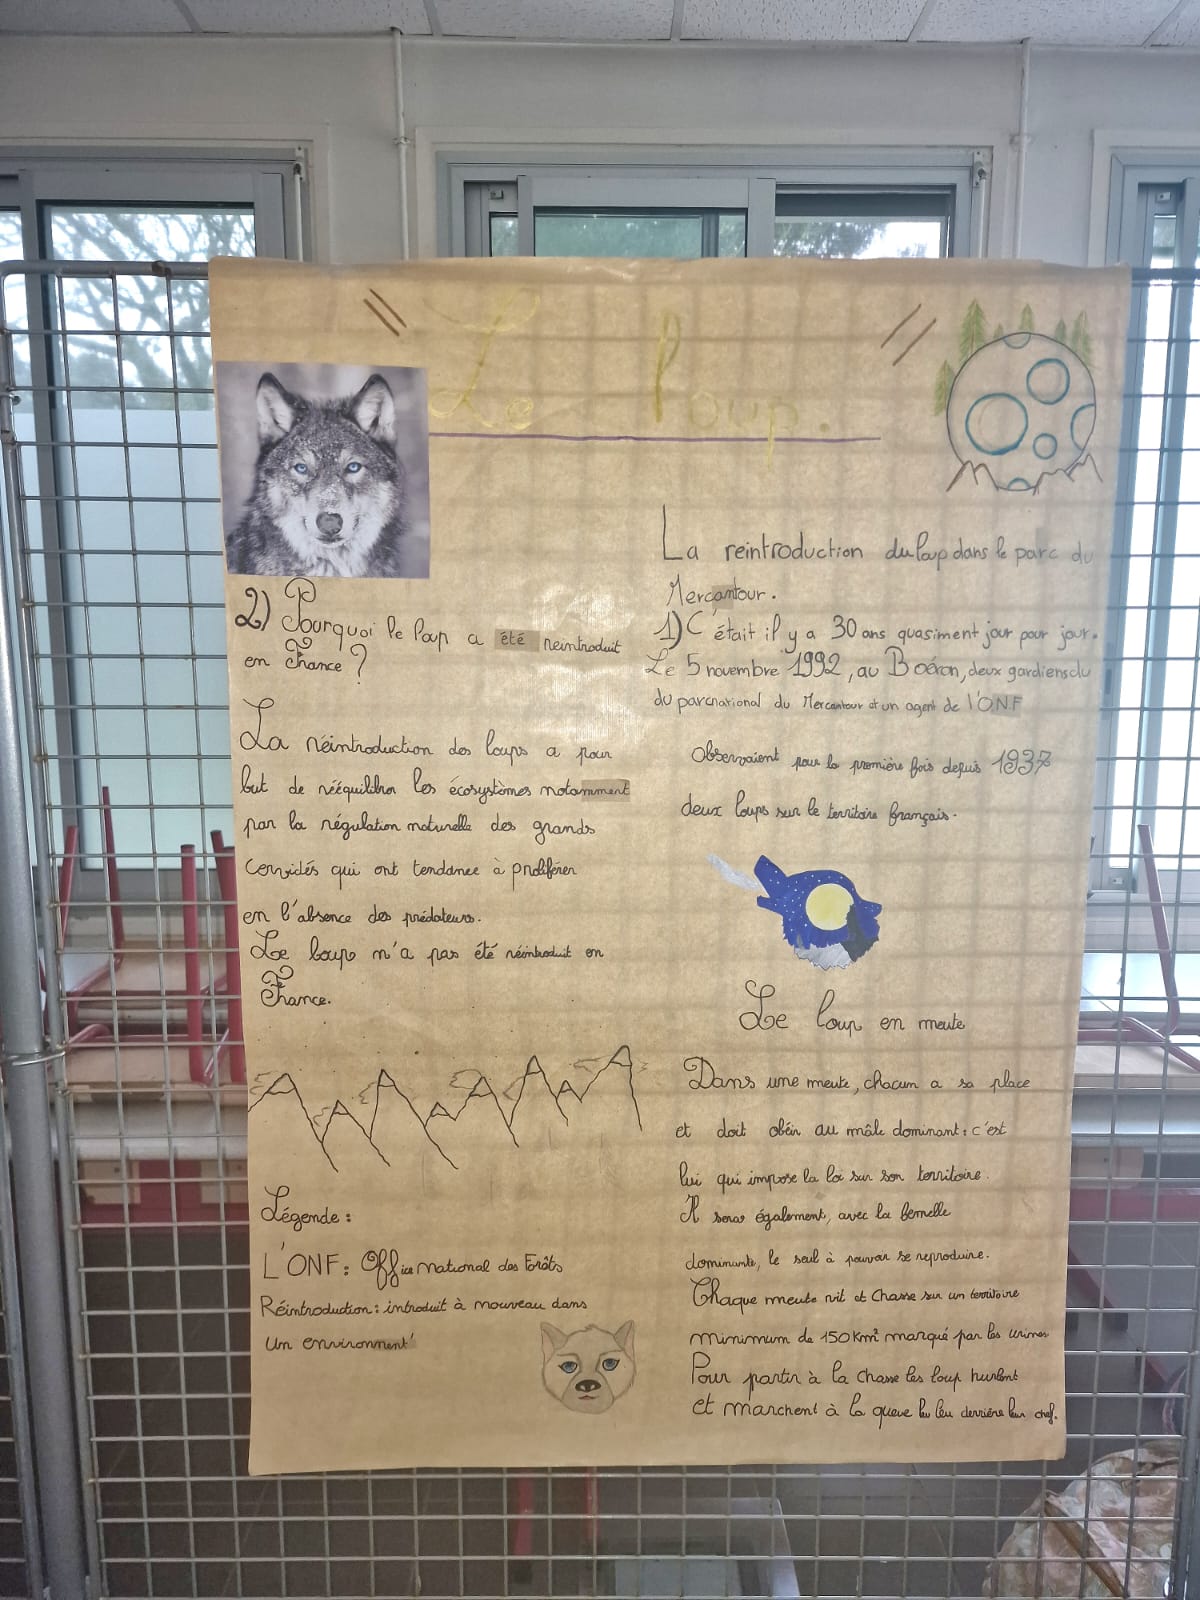 Le loup.
La reintroduction du loup dans le parc du
Mercantour.
1) C'était il y a 30 ans quasiment jour pour jour.
Le 5 novembre 1992, au Boéron, deux gardiens du
du parc national du Mercantour et un agent de l'O.N.F
Observaient pour la première fois depuis 1937
deux loups sur le territoire français.
2) Pourquoi le loup a été reintroduit
en France ?
La réintroduction des loups a pour
but de rééquilibrer les écosystèmes notamment
par la régulation naturelle des grands
cervidés qui ont tendance à proliférer
en l'absence des prédateurs.
Le loup n'a pas été réintroduit en
France.
Légende :
L'ONF : Office national des Forêts
Réintroduction : introduit à nouveau dans
un environment
Le loup en meute
Dans une meute, chacun a sa place
et doit obéir au mâle dominant : c'est
lui qui impose la loi sur son territoire.
Il sera également, avec la femelle
dominante, le seul à pouvoir se reproduire.
Chaque meute vit et Chasse sur un territoire
minimum de 150 km² marqué par les urines
Pour partir à la chasse les loup hurlent
et marchent à la queue leu leu derrière leur chef.